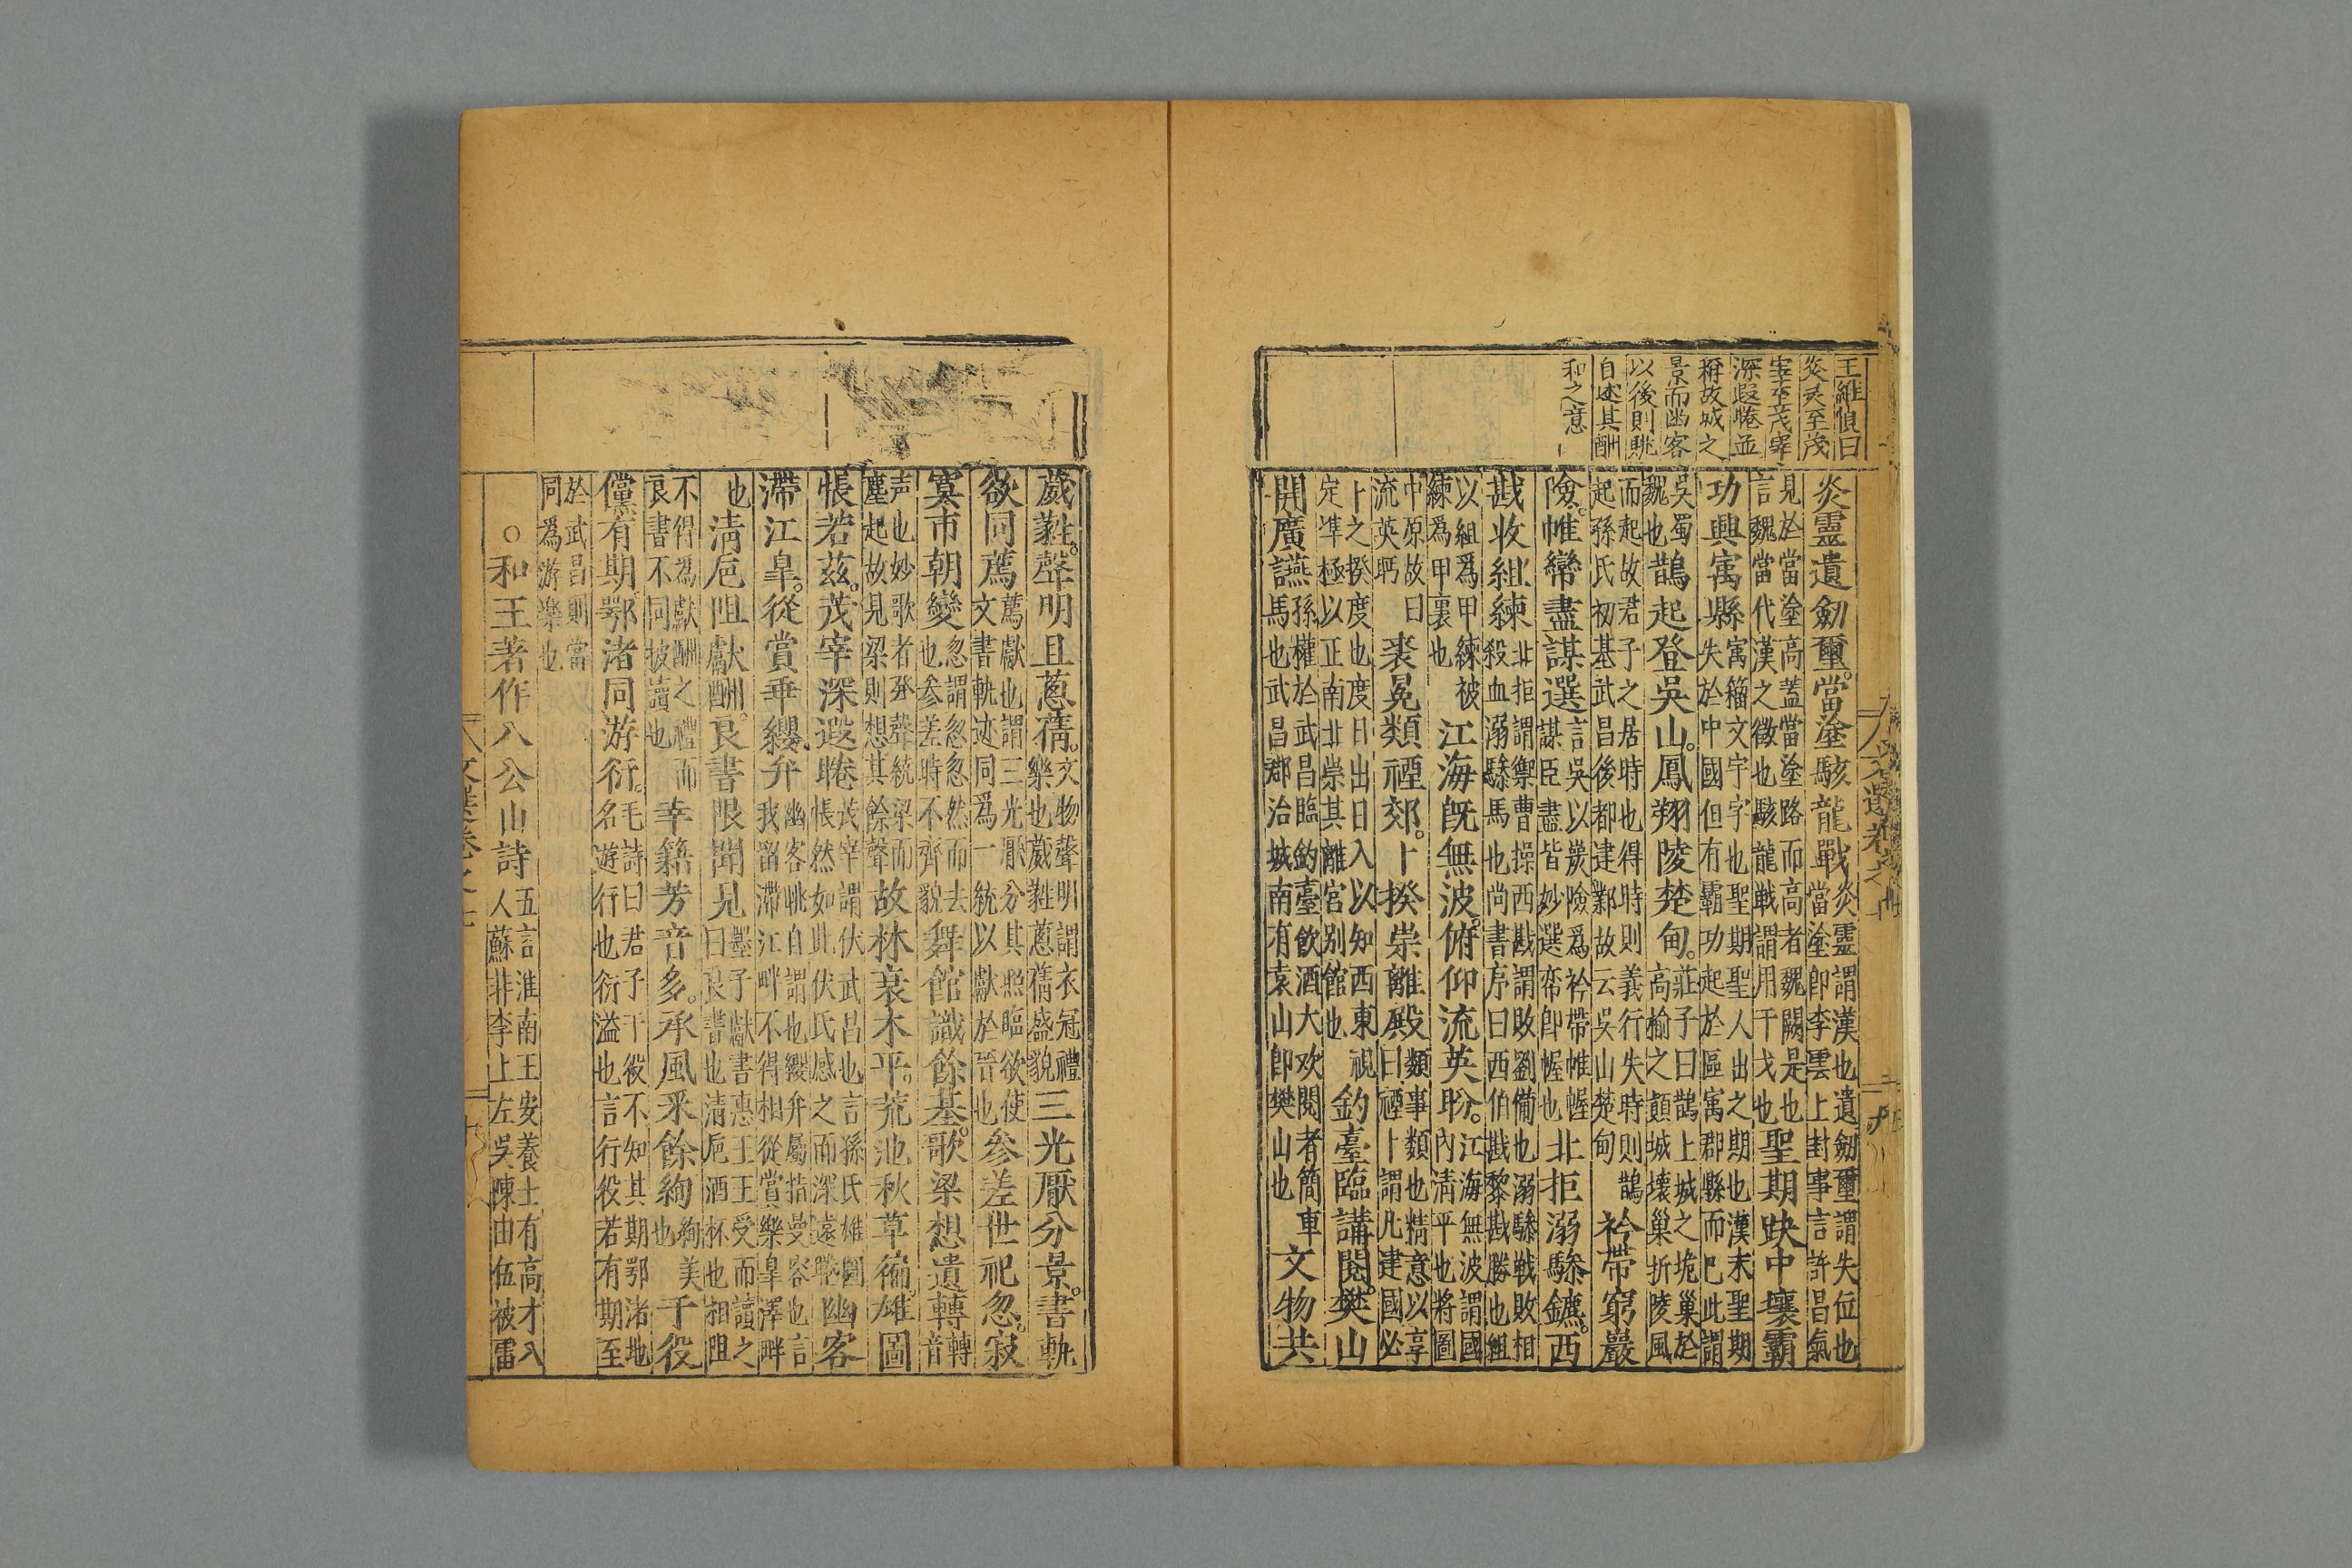 王維楨曰
炎灵至茂
宰至茂宰
深遐睠並
稱故城之
景而幽客
以後則眺
自述其酬
和之意
炎靈遺劒璽。當塗駭龍戰炎靈謂漢也遺劒璽謂失位也
當塗即李雲上封事言許昌氣
見於當塗高蓋當塗路而高者魏闕是也
言魏當代漢之徵也駭龍戰謂用干戈也聖期缺中壤霸
功興寓縣寓籀文宇字也聖期聖人出之期也漢末聖期
失於中國但有霸功起於區寓郡縣而巳此謂
吳蜀
魏也鵲起登吳山。鳳翔陵楚甸。莊子曰鵲上城之垝巢於
高榆之顛城壞巢折陵風
而起故君子之居時也得時則義行失時則鵲
起孫氏初基武昌後都建鄴故云吳山楚甸衿帶窮巖
險。帷帟盡謀選言吳以嵗險爲衿帶帷幄
謀臣盡皆妙選帟即幄也北拒溺驂鑣。西
戡收組練北拒謂禦曹操西戡謂敗劉備也溺驂戦敗相
殺血溺驂馬也尚書序曰西伯戡黎戡勝也組
以組爲甲練被
練爲甲裏也江海旣無波。俯仰流英盻。江海無波謂國
內淸平也將圖
中原故曰
流英眄裘冕類禋郊。卜揆崇離殿類事類也精意以享
曰禋卜謂凡建國必
卜之揆度也度日出日入以知西東視
定準極以正南北崇其離宮别館也釣臺臨講閱。樊山
開廣讌孫權於武昌臨釣臺飲酒大欢閱者簡車
馬也武昌郡治城南有袁山卽樊山也文物共
葳蕤。聲明且蔥蒨。文物聲明謂衣冠禮
樂也葳蕤蔥蒨盛貌三光厭分景。書軌
欲同薦薦獻也謂三光厭分其照臨欲使
文書軌迹同爲一統以獻於晉也参差世祀忽。寂
寞市朝變忽謂忽忽然而去
也参差時不齊貌舞館識餘基。歌梁想遺轉轉
音
声也妙歌者發聲統梁而
塵起故見梁則想其餘聲故林衰木平。荒池秋草徧。雄圖
悵若茲。茂宰深遐睠茂宰謂伏武昌也言孫氏雄圖
悵然如此伏氏感之而深遠睠幽客
滯江臯。從賞乖纓弁幽客眺自謂也纓弁屬指曼容也言
我留滯江畔不得相從賞樂臯澤畔
也淸巵阻獻酬。良書限聞見墨子獻書惠王王受而讀之
曰良書也清巵酒杯也相阻
不得爲獻酬之禮而
良書不同披讀也幸籍芳音多。承風釆餘絢絢美
也于役
儻有期鄂渚同游衍。毛詩曰君子于役不知其期鄂渚地
名遊行也衍溢也言行役若有期至
於武昌則當
同爲游樂也
○和王著作八公山詩五言淮南王安養士有高才八
人蘇非李上左吳陳由伍被雷